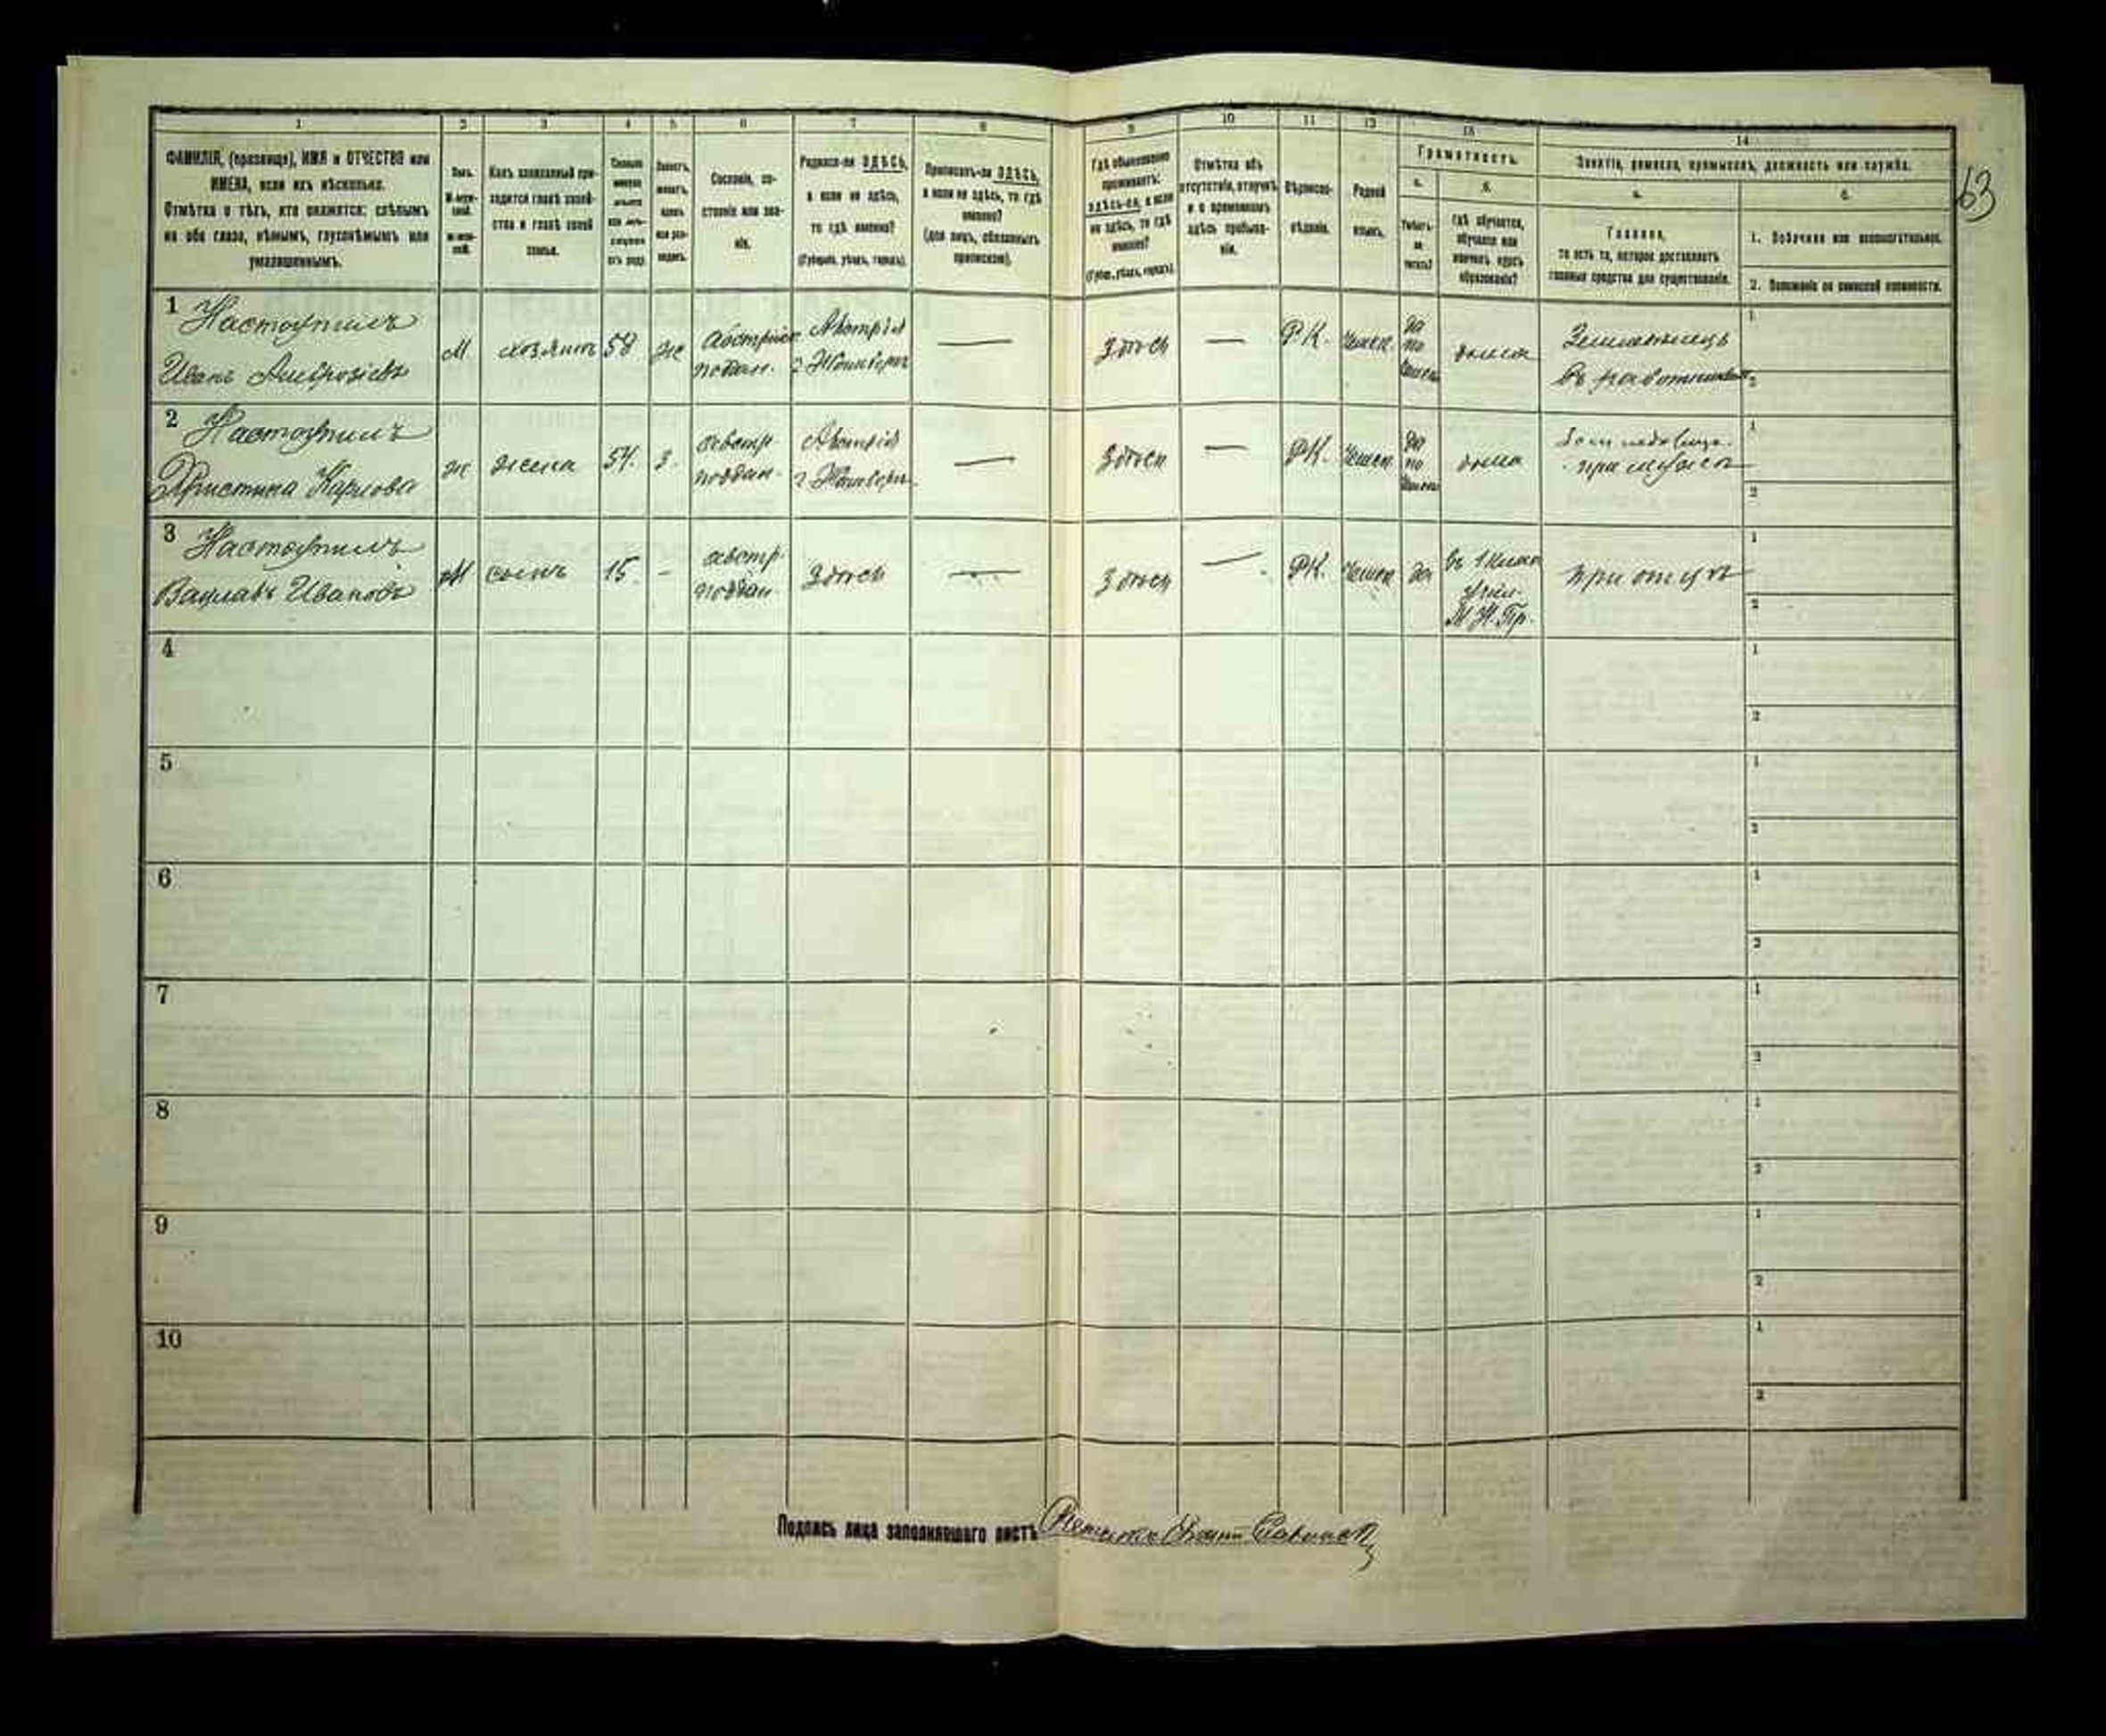 1
2
3
4
5
6
7
8
9
10
11
12
13
14
63
ФАМИЛІЯ, (прозвище), ИМЯ и ОТЧЕСТВО или
ИМЕНА, если ихъ нѣсколько.
Отмѣтка о тѣхъ, кто окажется: слѣпымъ
на оба глаза, нѣмымъ, глухонѣмымъ или
умалишеннымъ.
Полъ.
Какъ записанный при-
ходится главѣ хозяй-
ства и главѣ своей
семьи.
Сословіе, со-
стояніе или зва-
ніе.
Родился-ли ЗДѢСЬ,
а если не здѣсь,
то гдѣ именно?
(Губернія, уѣздъ, городъ).
Приписанъ-ли ЗДѢСЬ,
а если не здѣсь, то гдѣ
именно?
(для лицъ, обязанныхъ
припискою).
Гдѣ обыкновенно
проживаетъ:
здѣсь-ли, а если
не здѣсь, то гдѣ
именно?
(Губер., уѣздъ, городъ).
Отмѣтка объ
отсутствіи, отлучкѣ
и о временномъ
здѣсь пребыва-
ніи.
Вѣроиспо-
вѣданіе.
Родной
языкъ.
Грамотность.
а.
Умѣетъ-
ли
читать?
б.
гдѣ обучается,
обучался или
кончилъ курсъ
образованія?
Занятіе, ремесло, промыселъ, должность или служба.
а.
Главное,
то есть то, которое доставляетъ
главныя средства для существованія.
б.
1. Побочное или вспомогательное.
2. Положеніе по воинской повинности.
1 Настоупилъ
Иванъ Амброзіевъ
М
хозяинъ
58
ж
Австрійск
подан.
Австрія
здѣсь
Р.К.
Чешск
да
по
Чешск
дома
Земледѣлецъ
1
2
2 Настоупилъ
Христина Карлова
ж
жена
54.
з.
австр
поддан.
Австрія
здѣсь
Р.К.
Чешск
да
по
Чешск
дома
при мужѣ
1
2
3 Настоупилъ
Вацлавъ Ивановъ
М
сынъ
15.
австр.
поддан
здѣсь
здѣсь
Р.К.
Чешск
да
въ 1 клас
учил.
М.Н.Пр.
при отцѣ
1
2
4
1
2
5
1
2
6
1
2
7
1
2
8
1
2
9
1
2
10
1
2
Подпись лица заполнявшаго листъ